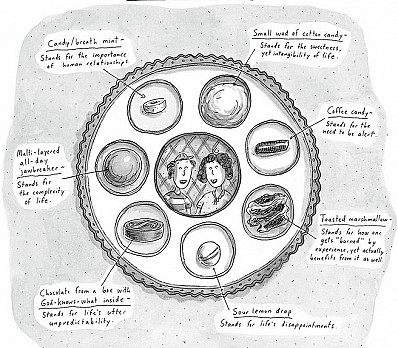 Candy/breath mint-
Stands for the importance
of human relationships.
Small wad of cotton candy-
Stands for the sweetness,
yet intangibility of life.
Coffee candy-
Stands for the
need to be alert.
Multi-layered
all-day
jawbreaker-
Stands for
the complexity
of life.
Toasted marshmallow-
Stands for how one
gets "burned" by
experience, yet actually
benefits from it as well.
Chocolate from a box with
God-knows-what inside-
Stands for life's utter
unpredictability.
Sour lemon drop
Stands for life's disappointments.